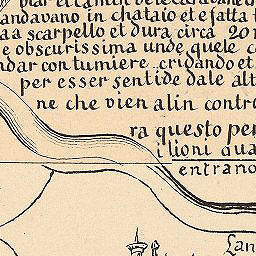 andavano in chataio et e fatta
a scarpello et dura circa 20
e obscurissima unde quele
ndar con lumiere cridando et
per esser sentide dale alt
ne che vien alin contr
ra questo per
ilioni qua
entrano
Lan